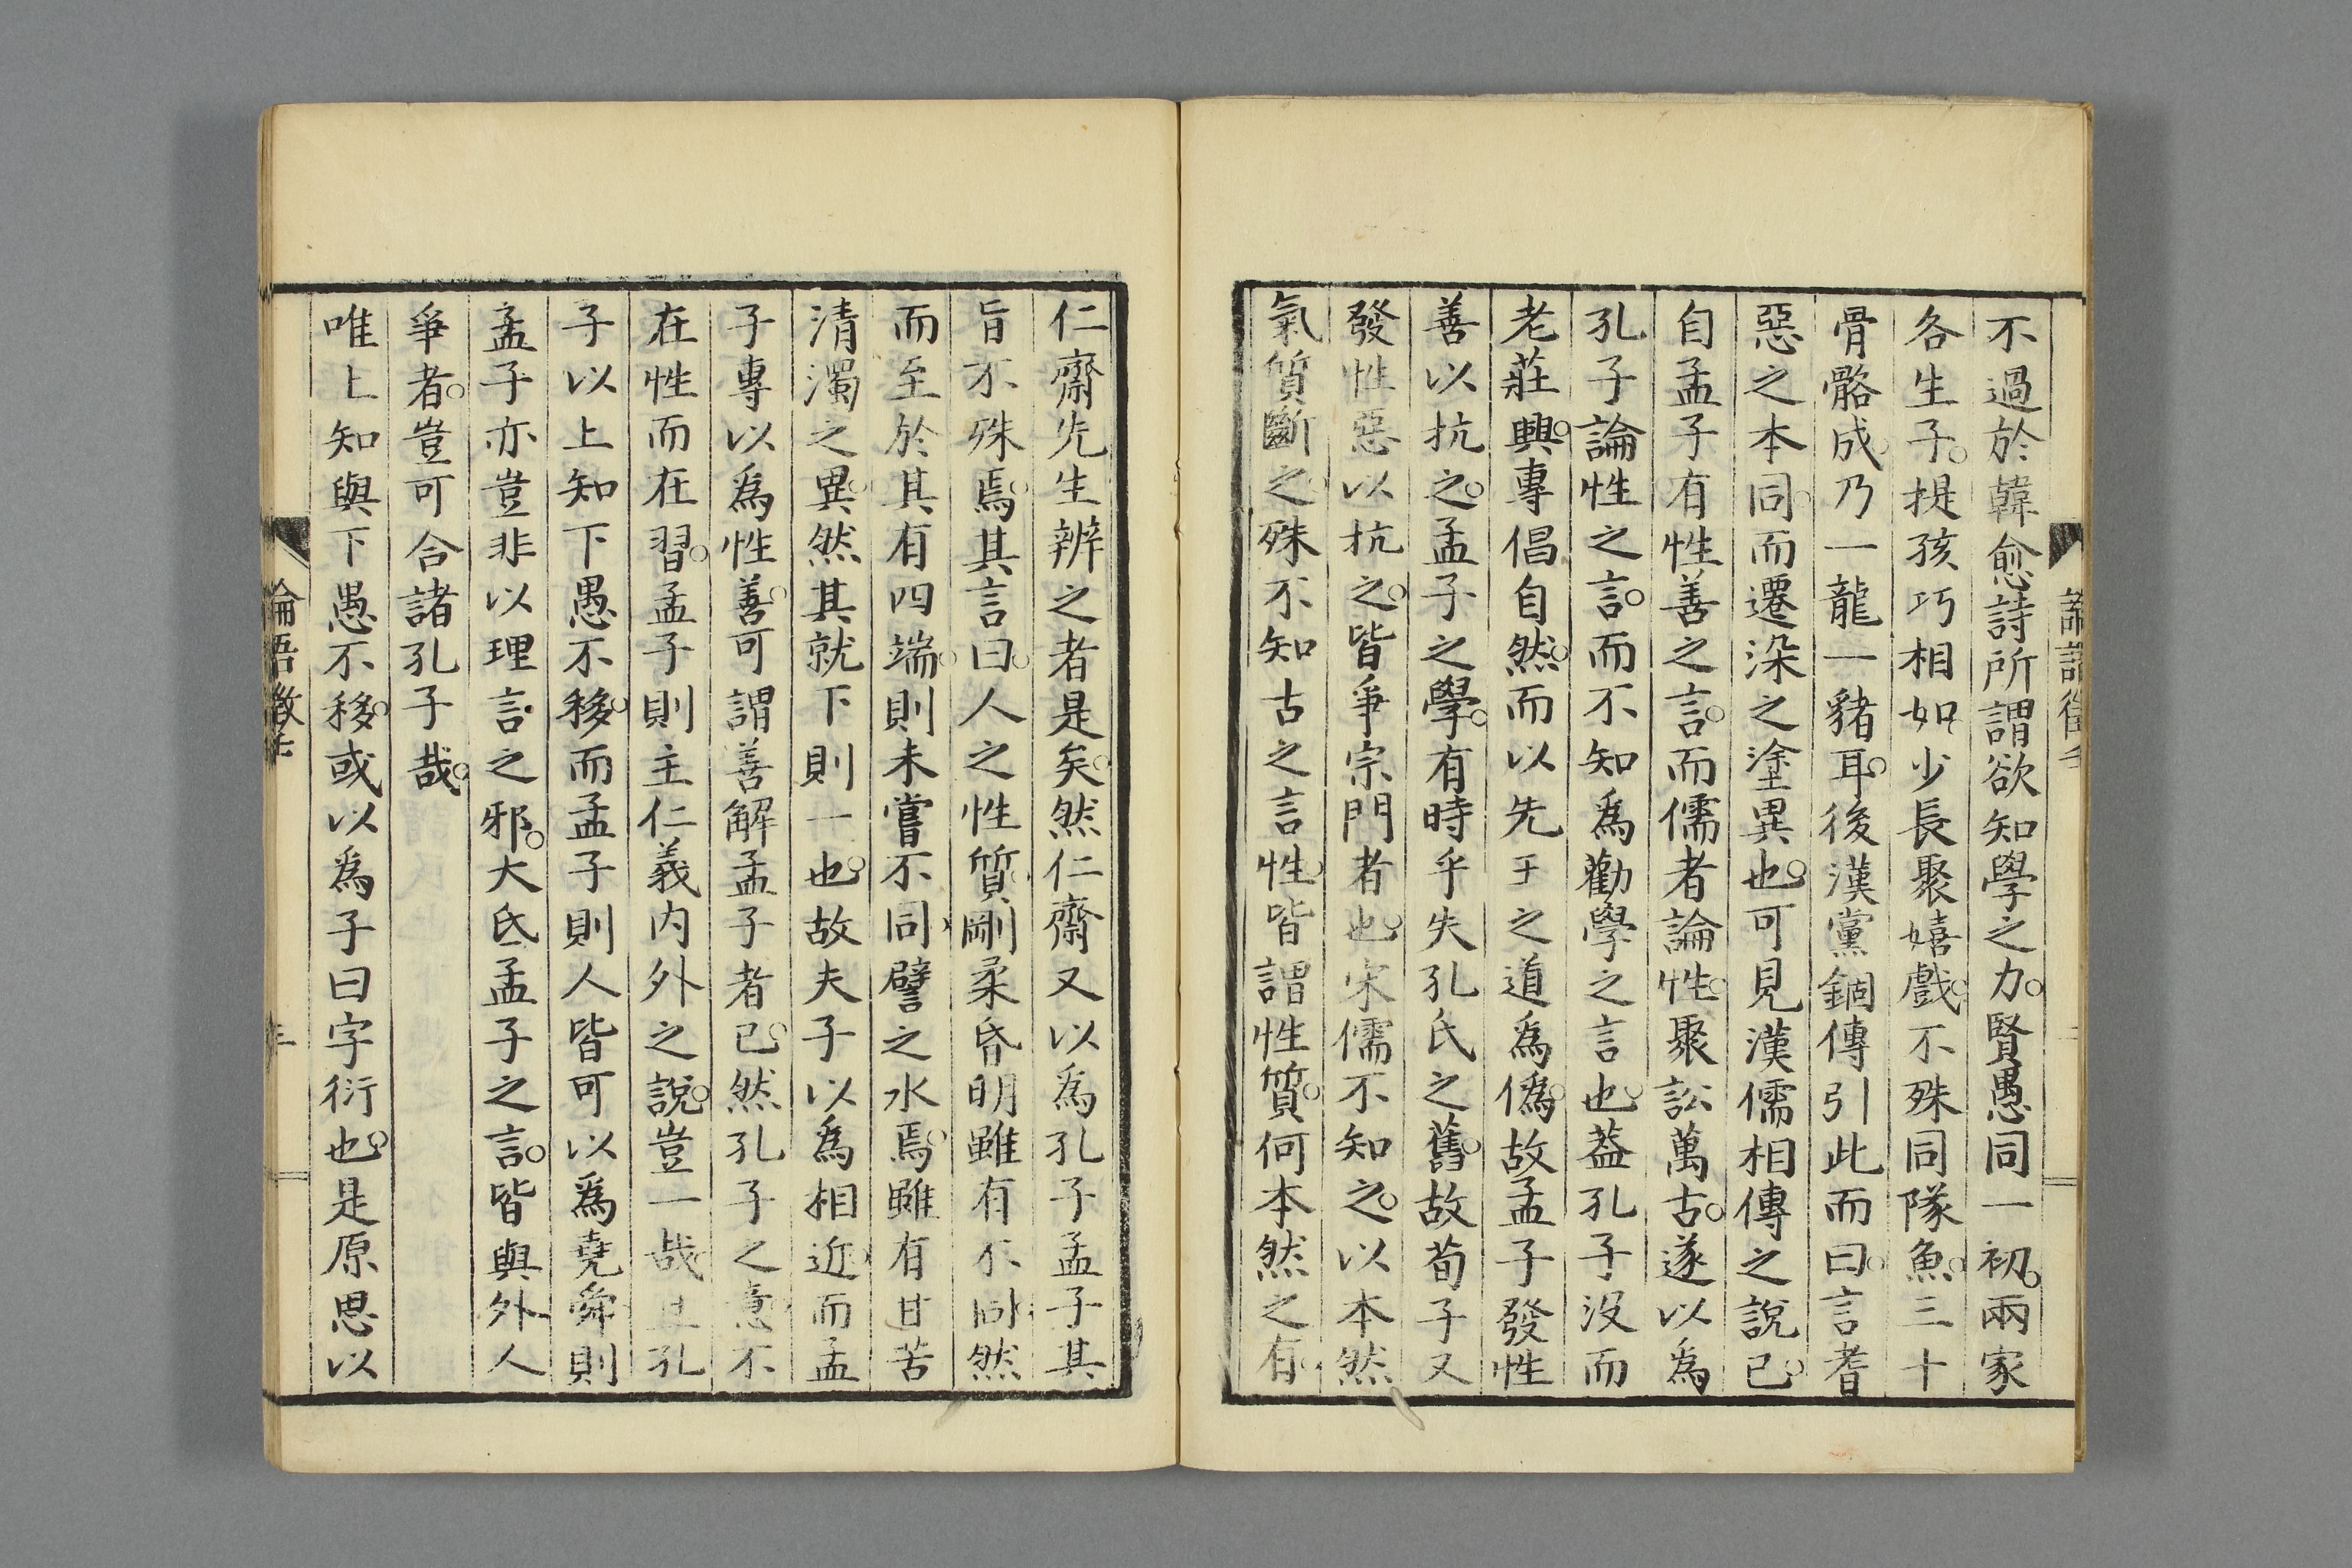 不過於韓愈詩所謂欲知學之力。賢愚同一初。兩家
各生子。提孩巧相如少長聚嬉戲。不殊同隊魚。三十
骨骼成。乃一龍一豬耳。後漢黨錮傳引此而曰。言耆
惡之本同。而遷染之塗異也。可見漢儒相傳之說已。
自孟子有性善之言。而儒者論性。聚訟萬古。遂以為
孔子論性之言。而不知為勸學之言也。葢孔子沒而
老莊興。專倡自然。而以先王之道為偽。故孟子發性
善以抗之。孟子之學。有時乎失孔氏之舊。故荀子又
發性惡以抗之。皆爭宗門者也。宋儒不知之。以本然
氣質斷之。殊不知古之言性。皆謂性質。何本然之有。
仁齋先生辨之者是矣。然仁齋又以為孔子孟子其
旨不殊焉。其言曰。人之性質。剛柔昏明雖有不同。然
而至於其有四端。則未嘗不同。譬之水焉。雖有甘苦
清濁之異。然其就下則一也。故夫子以為相近。而孟
子專以為性善。可謂善解孟子者已。然孔子之意。不
在性而在習。孟子則主仁義內外之說。豈一哉。且孔
子以上知下愚不移。而孟子則人皆可以為堯舜。則
孟子亦豈非以理言之邪。大氐孟子之言。皆與外人
爭者。豈可合諸孔子哉。
唯上知與下愚不移。或以為子曰字衍也。是原思以
論語徵壬